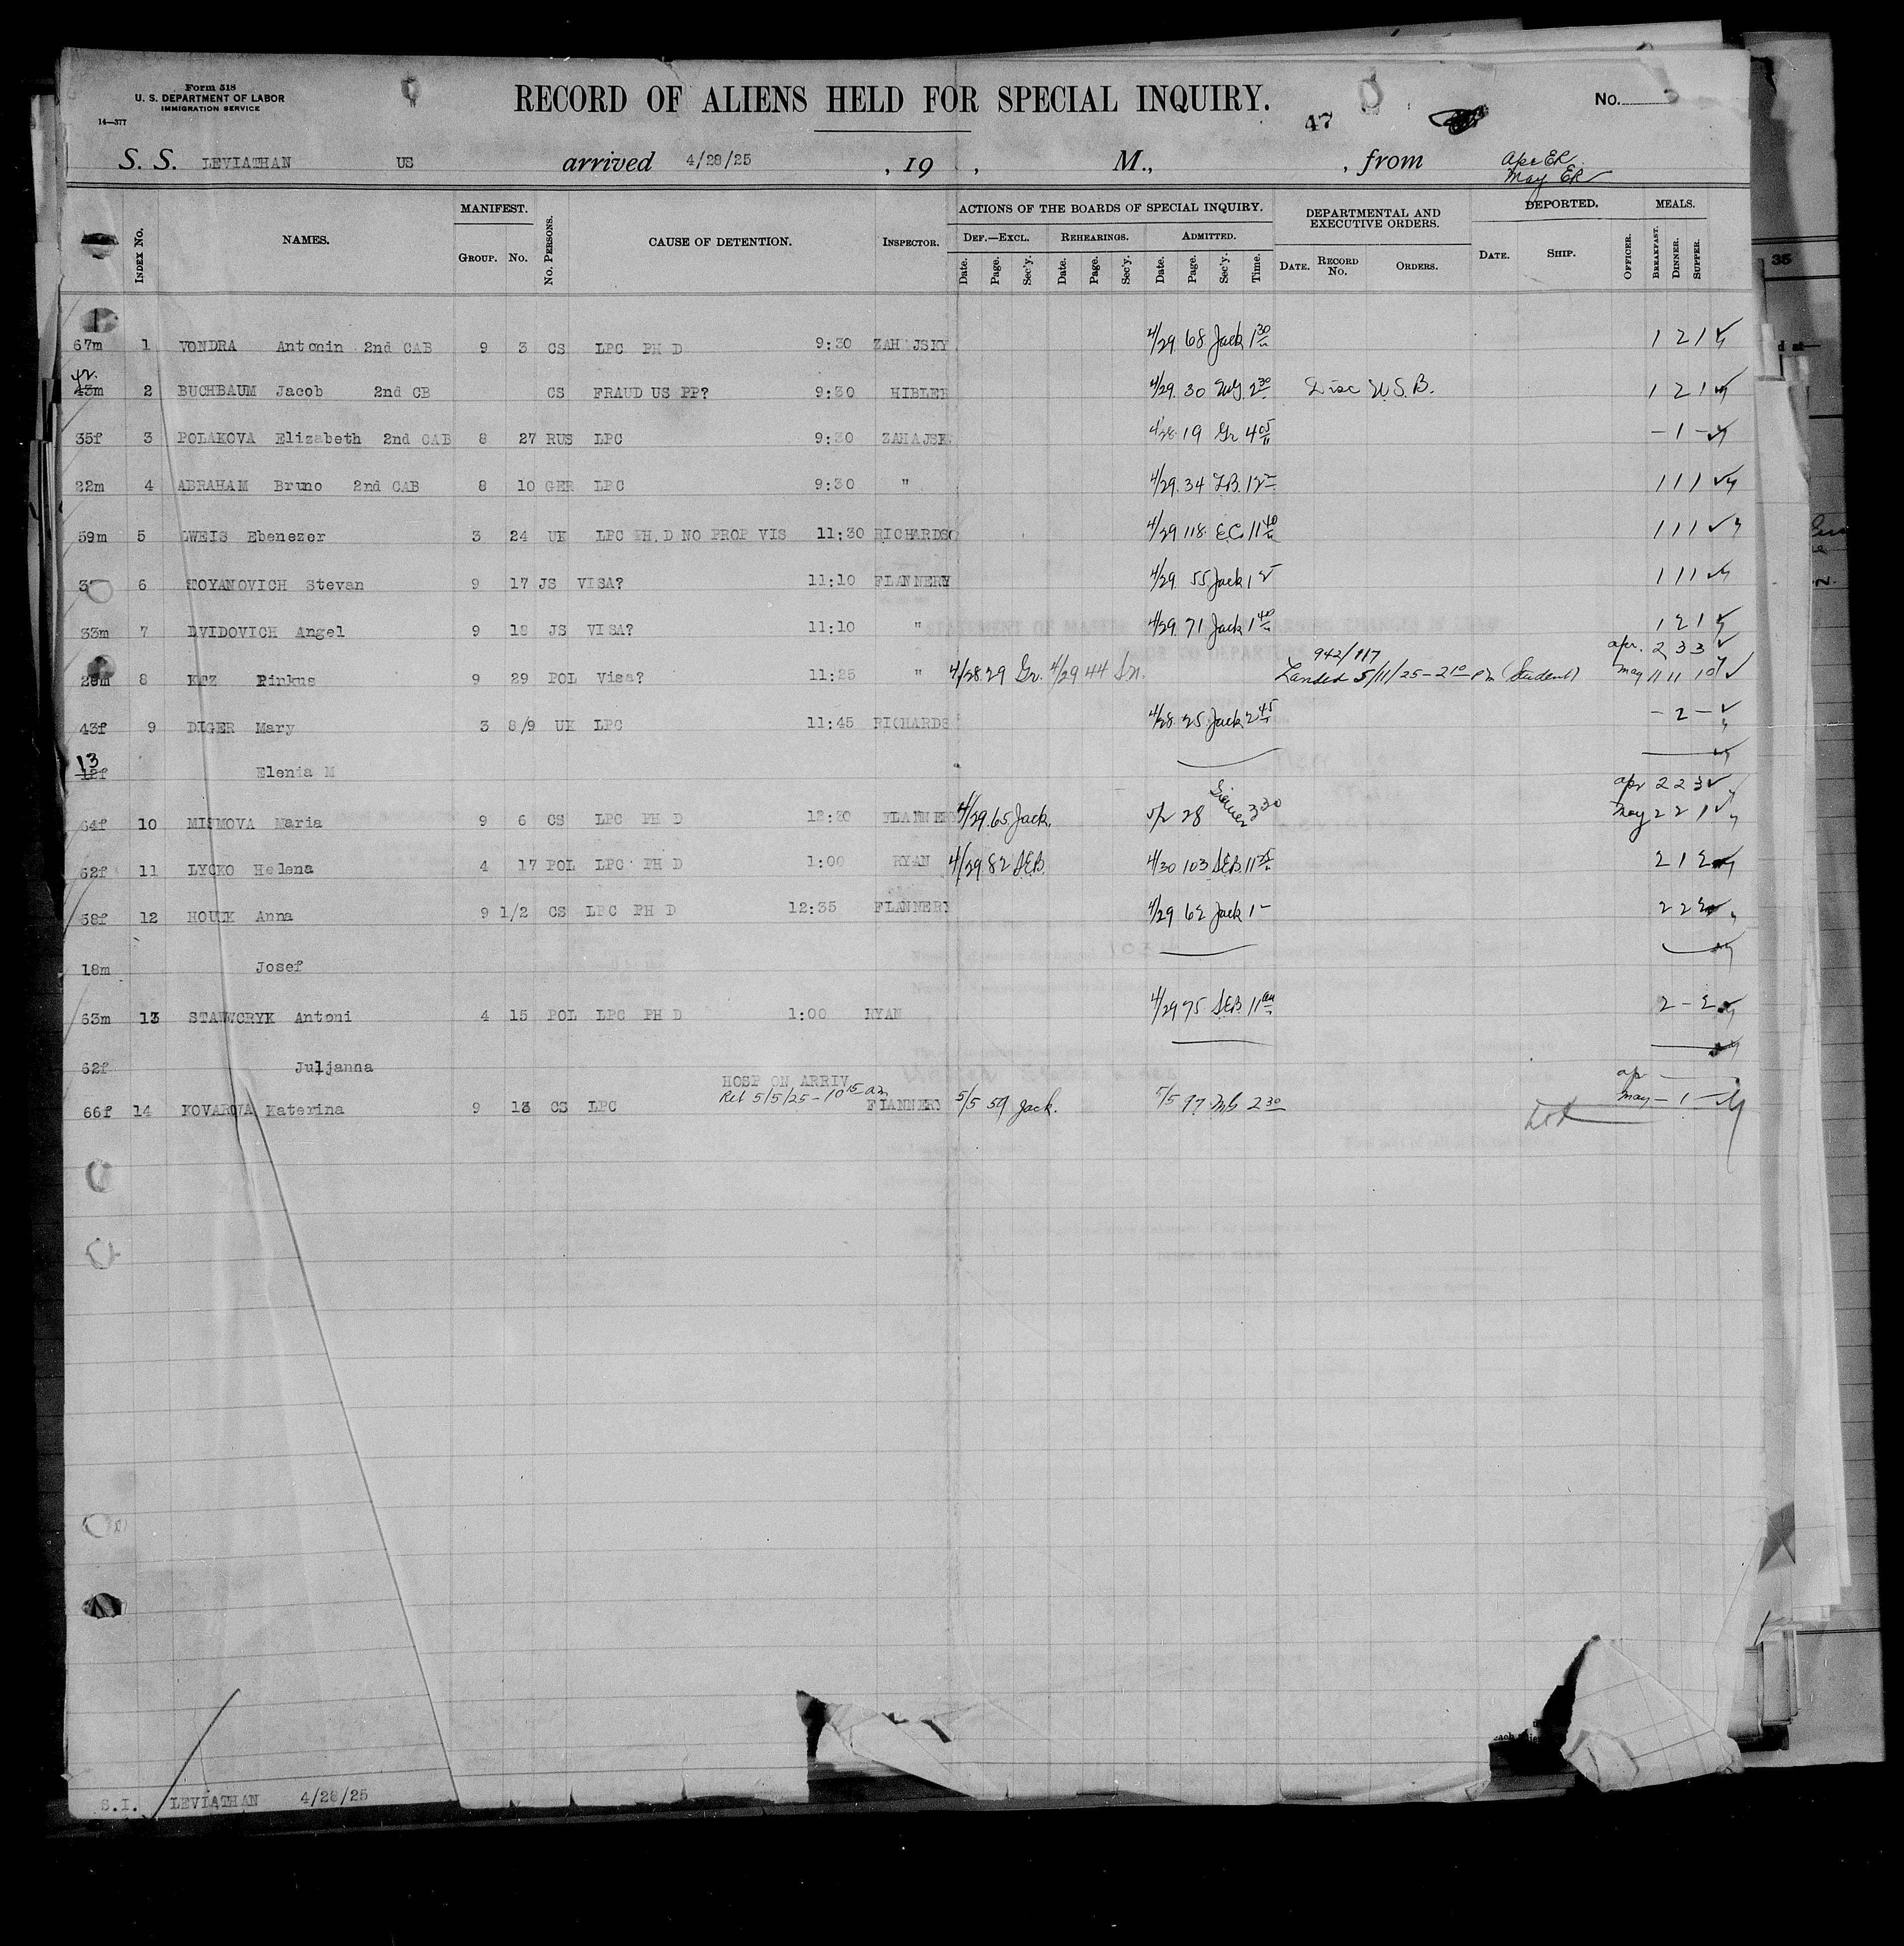 Form 518
U. S. DEPARTMENT OF LABOR
IMMIGRATION SERVICE
14—377
RECORD OF ALIENS HELD FOR SPECIAL INQUIRY.
47
No.
S. S. LEVIATHAN US arrived 4/28/25 , 19 , M., , from
Apr ER
May ER
INDEX No. NAMES. MANIFEST. GROUP. No. No. PERSONS. CAUSE OF DETENTION. INSPECTOR. ACTIONS OF THE BOARDS OF SPECIAL INQUIRY. DEF.—EXCL. REHEARINGS. ADMITTED. Date. Page. Sec'y. Date. Page. Sec'y. Date. Page. Sec'y. Time. DEPARTMENTAL AND EXECUTIVE ORDERS. DATE. RECORD No. ORDERS. DEPORTED. DATE. SHIP. OFFICER. MEALS. BREAKFAST. DINNER. SUPPER.
67m 1 VONDRA Antonin 2nd CAB 9 3 CS LPC PH D 9:30 ZAHAJSKY 4/29 68 Jack 1 30 1 2 1
42
43m 2 BUCHBAUM Jacob 2nd CB CS FRAUD US PP? 9:30 HIBLER 4/29 30 2 30 Disc U.S.B. 1 2 1
35f 3 POLAKOVA Elizabeth 2nd CAB 8 27 RUS LPC 9:30 ZAHAJSK 4/28 19 Gr 4 05 — 1 —
22m 4 ABRAHAM Bruno 2nd CAB 8 10 GER LPC 9:30 " 4/29 34 1 1 1
59m 5 WEIS Ebenezer 3 24 UK LPC PH.D NO PROP VIS 11:30 RICHARDSO 4/29 118 E.C. 11 40 1 1 1
6 STOYANOVICH Stevan 9 17 JS VISA? 11:10 FLANNERY 4/29 55 Jack 1 1 1
33m 7 DVIDOVICH Angel 9 18 JS VISA? 11:10 " 4/29 71 Jack 1 40 1 2 1
942/117 apr. 2 3 3
28m 8 KTZ Pinkus 9 29 POL Visa? 11:25 " 4/28 29 Gr. 4/29 44 Landed 5/11/25 – 2 10 PM (Student) May 11 11 10
43f 9 DIGER Mary 3 8/9 UK LPC 11:45 RICHARDS 4/28 25 Jack 2 45 — 2 —
13
12f Elenia M
apr 2 2 3
64f 10 MISMOVA Maria 9 6 CS LPC PH D 12:20 FLANNERY 4/29 65 Jack. 5/2 28 3 30 May 2 2 1
62f 11 LYCKO Helena 4 17 POL LPC PH D 1:00 RYAN 4/29 82 SEB. 4/30 103 SEB. 11 25 2 1 2
58f 12 HOUCK Anna 9 1/2 CS LPC PH D 12:35 FLANNERY 4/29 62 Jack 1 — 2 2 2
18m Josef
63m 13 STAWCRYK Antoni 4 15 POL LPC PH D 1:00 RYAN 4/29 75 SEB. 11 2 – 2
62f Juljanna
HOSP ON ARRIV
Rel 5/5/25 – 10 15 am
66f 14 KOVAROVA Katerina 9 13 CS LPC FLANNERY 5/5 59 Jack. 5/5 97 2 30 May — 1 —
S.I. LEVIATHAN 4/28/25